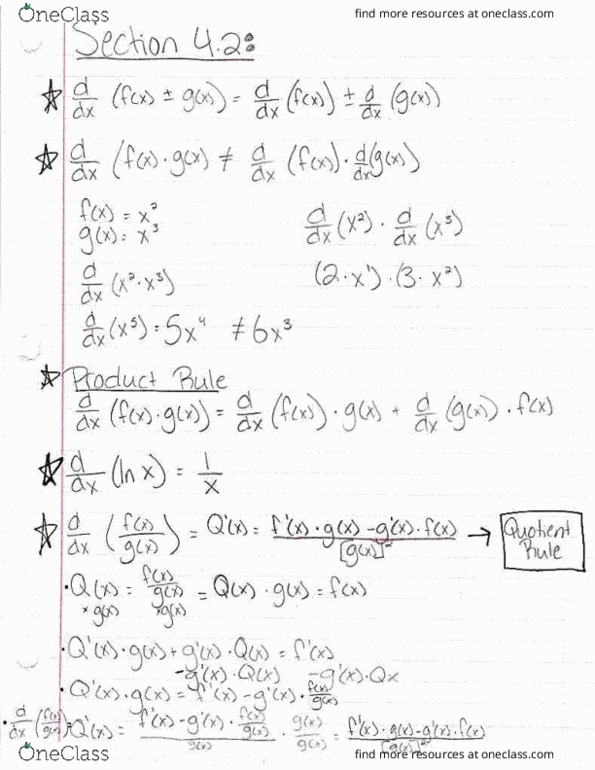 OneClass
find more resources at oneclass.com
Section 4.2:
☆ d/dx (f(x) ± g(x)) = d/dx (f(x)) ± d/dx (g(x))
☆ d/dx (f(x) · g(x)) ≠ d/dx (f(x)) · d/dx (g(x))
f(x) = x²
g(x) = x³
d/dx (x²) · d/dx (x³)
d/dx (x² · x³)
(2 · x¹) · (3 · x²)
d/dx (x⁵) = 5x⁴ ≠ 6x³
☆ Product Rule
d/dx (f(x) · g(x)) = d/dx (f(x)) · g(x) + d/dx (g(x)) · f(x)
☆ d/dx (ln x) = 1/x
☆ d/dx (f(x)/g(x)) = Q'(x) = f'(x) · g(x) - g'(x) · f(x) / [g(x)]² → Quotient Rule
· Q(x) = f(x)/g(x) = Q(x) · g(x) = f(x)
× g(x) × g(x)
· Q'(x) · g(x) + g'(x) · Q(x) = f'(x)
- g'(x) · Q(x) - g'(x) · Qx
· Q'(x) · g(x) = f'(x) - g'(x) · f(x)/g(x)
· d/dx (f(x)/g(x)) = Q'(x) = f'(x) - g'(x) · f(x)/g(x) / g(x) · g(x)/g(x) = f'(x) · g(x) - g'(x) · f(x) / [g(x)]²
OneClass
find more resources at oneclass.com